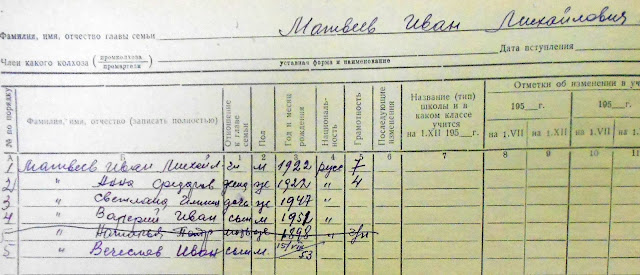 Фамилия, имя, отчество главы семьи Матвеев Иван Михайлович
Член какого колхоза (промколхоза промартели) уставная форма и наименование Дата вступления
№ по порядку Фамилия, имя, отчество (записать полностью) Отношение к главе семьи Пол Год и месяц рождения Националь-ность Грамотность Последующие изменения Название (тип) школы и в каком классе учится на 1.XII 195__г. Отметки об изменении в
195__г. 195__г.
на 1.VII на 1.XII на 1.VII на 1.
А Б 1 2 3 4 5 6 7 8 9 10 11
1 Матвеев Иван Михайл м 1922 русс 7
2 " Анна жена ж 1922 " 4
3 " Светлана дочь ж 1947 "
4 " Валерий Иван сын м 1951 "
" 1898
5 " Вечеслав Иван сын м. 15/VIII 53